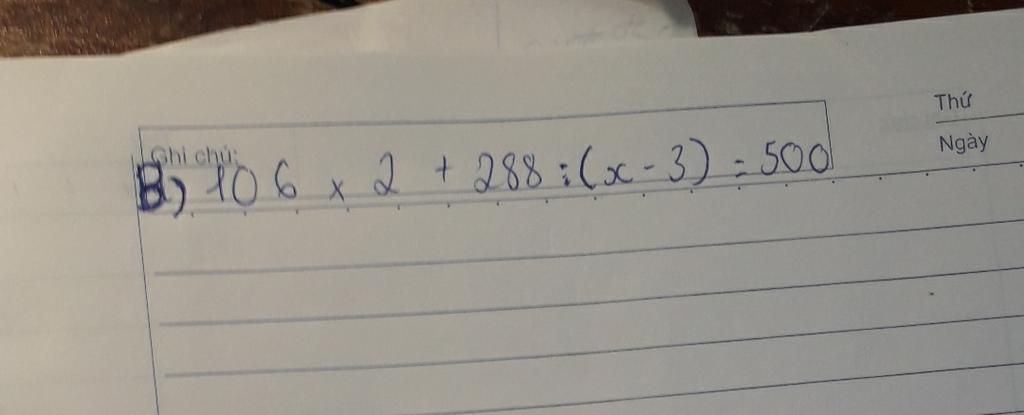 Thứ
Ngày
Ghi chú:
B) 106 x 2 + 288 : (x - 3) = 500